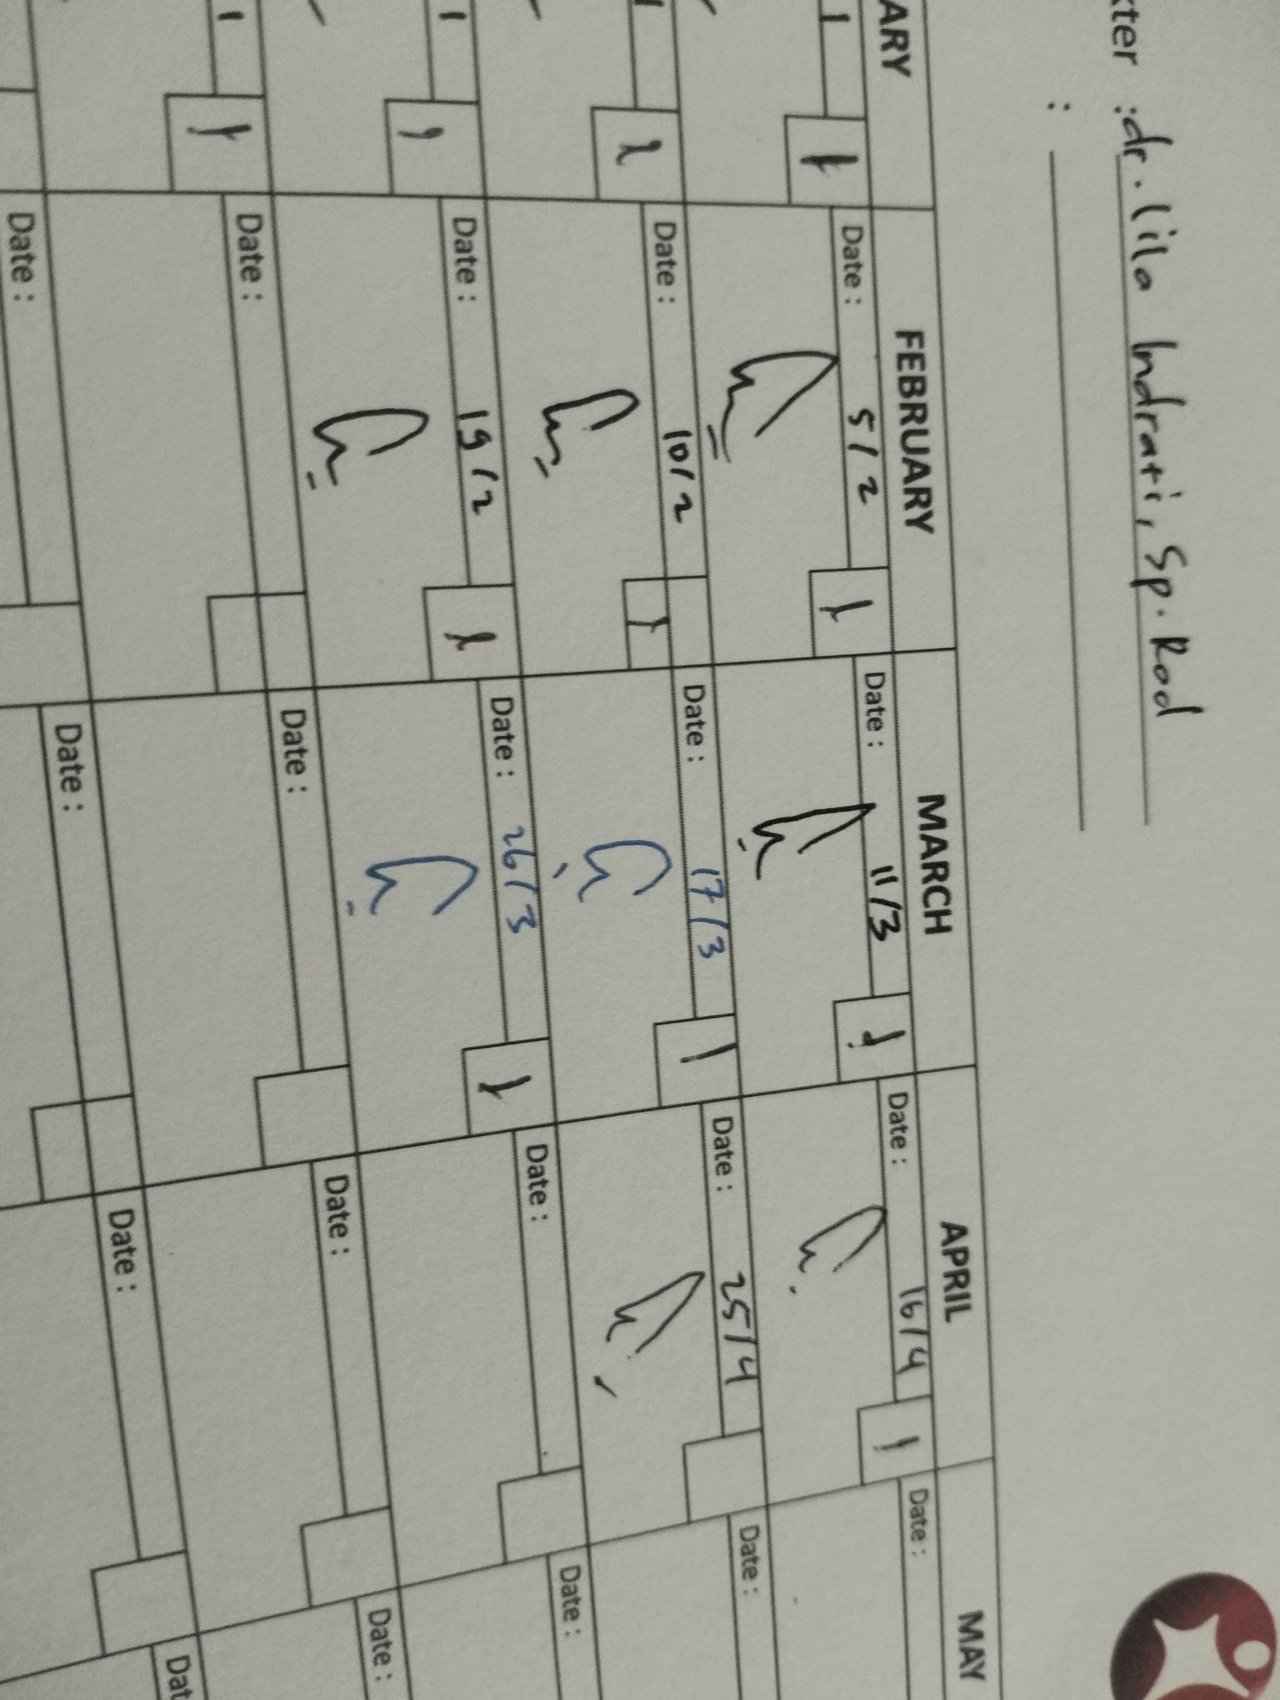 kter : dr. lila Indrati, Sp. Rad
:
ARY FEBRUARY MARCH APRIL MAY
Date : 5/2 Date : 11/3 Date : 16/4 Date :
Date : 10/2 Date : 17/3 Date : 25/4 Date :
Date : 19/2 Date : 26/3 Date : Date :
Date : Date : Date : Date :
Date : Date : Date : Dat